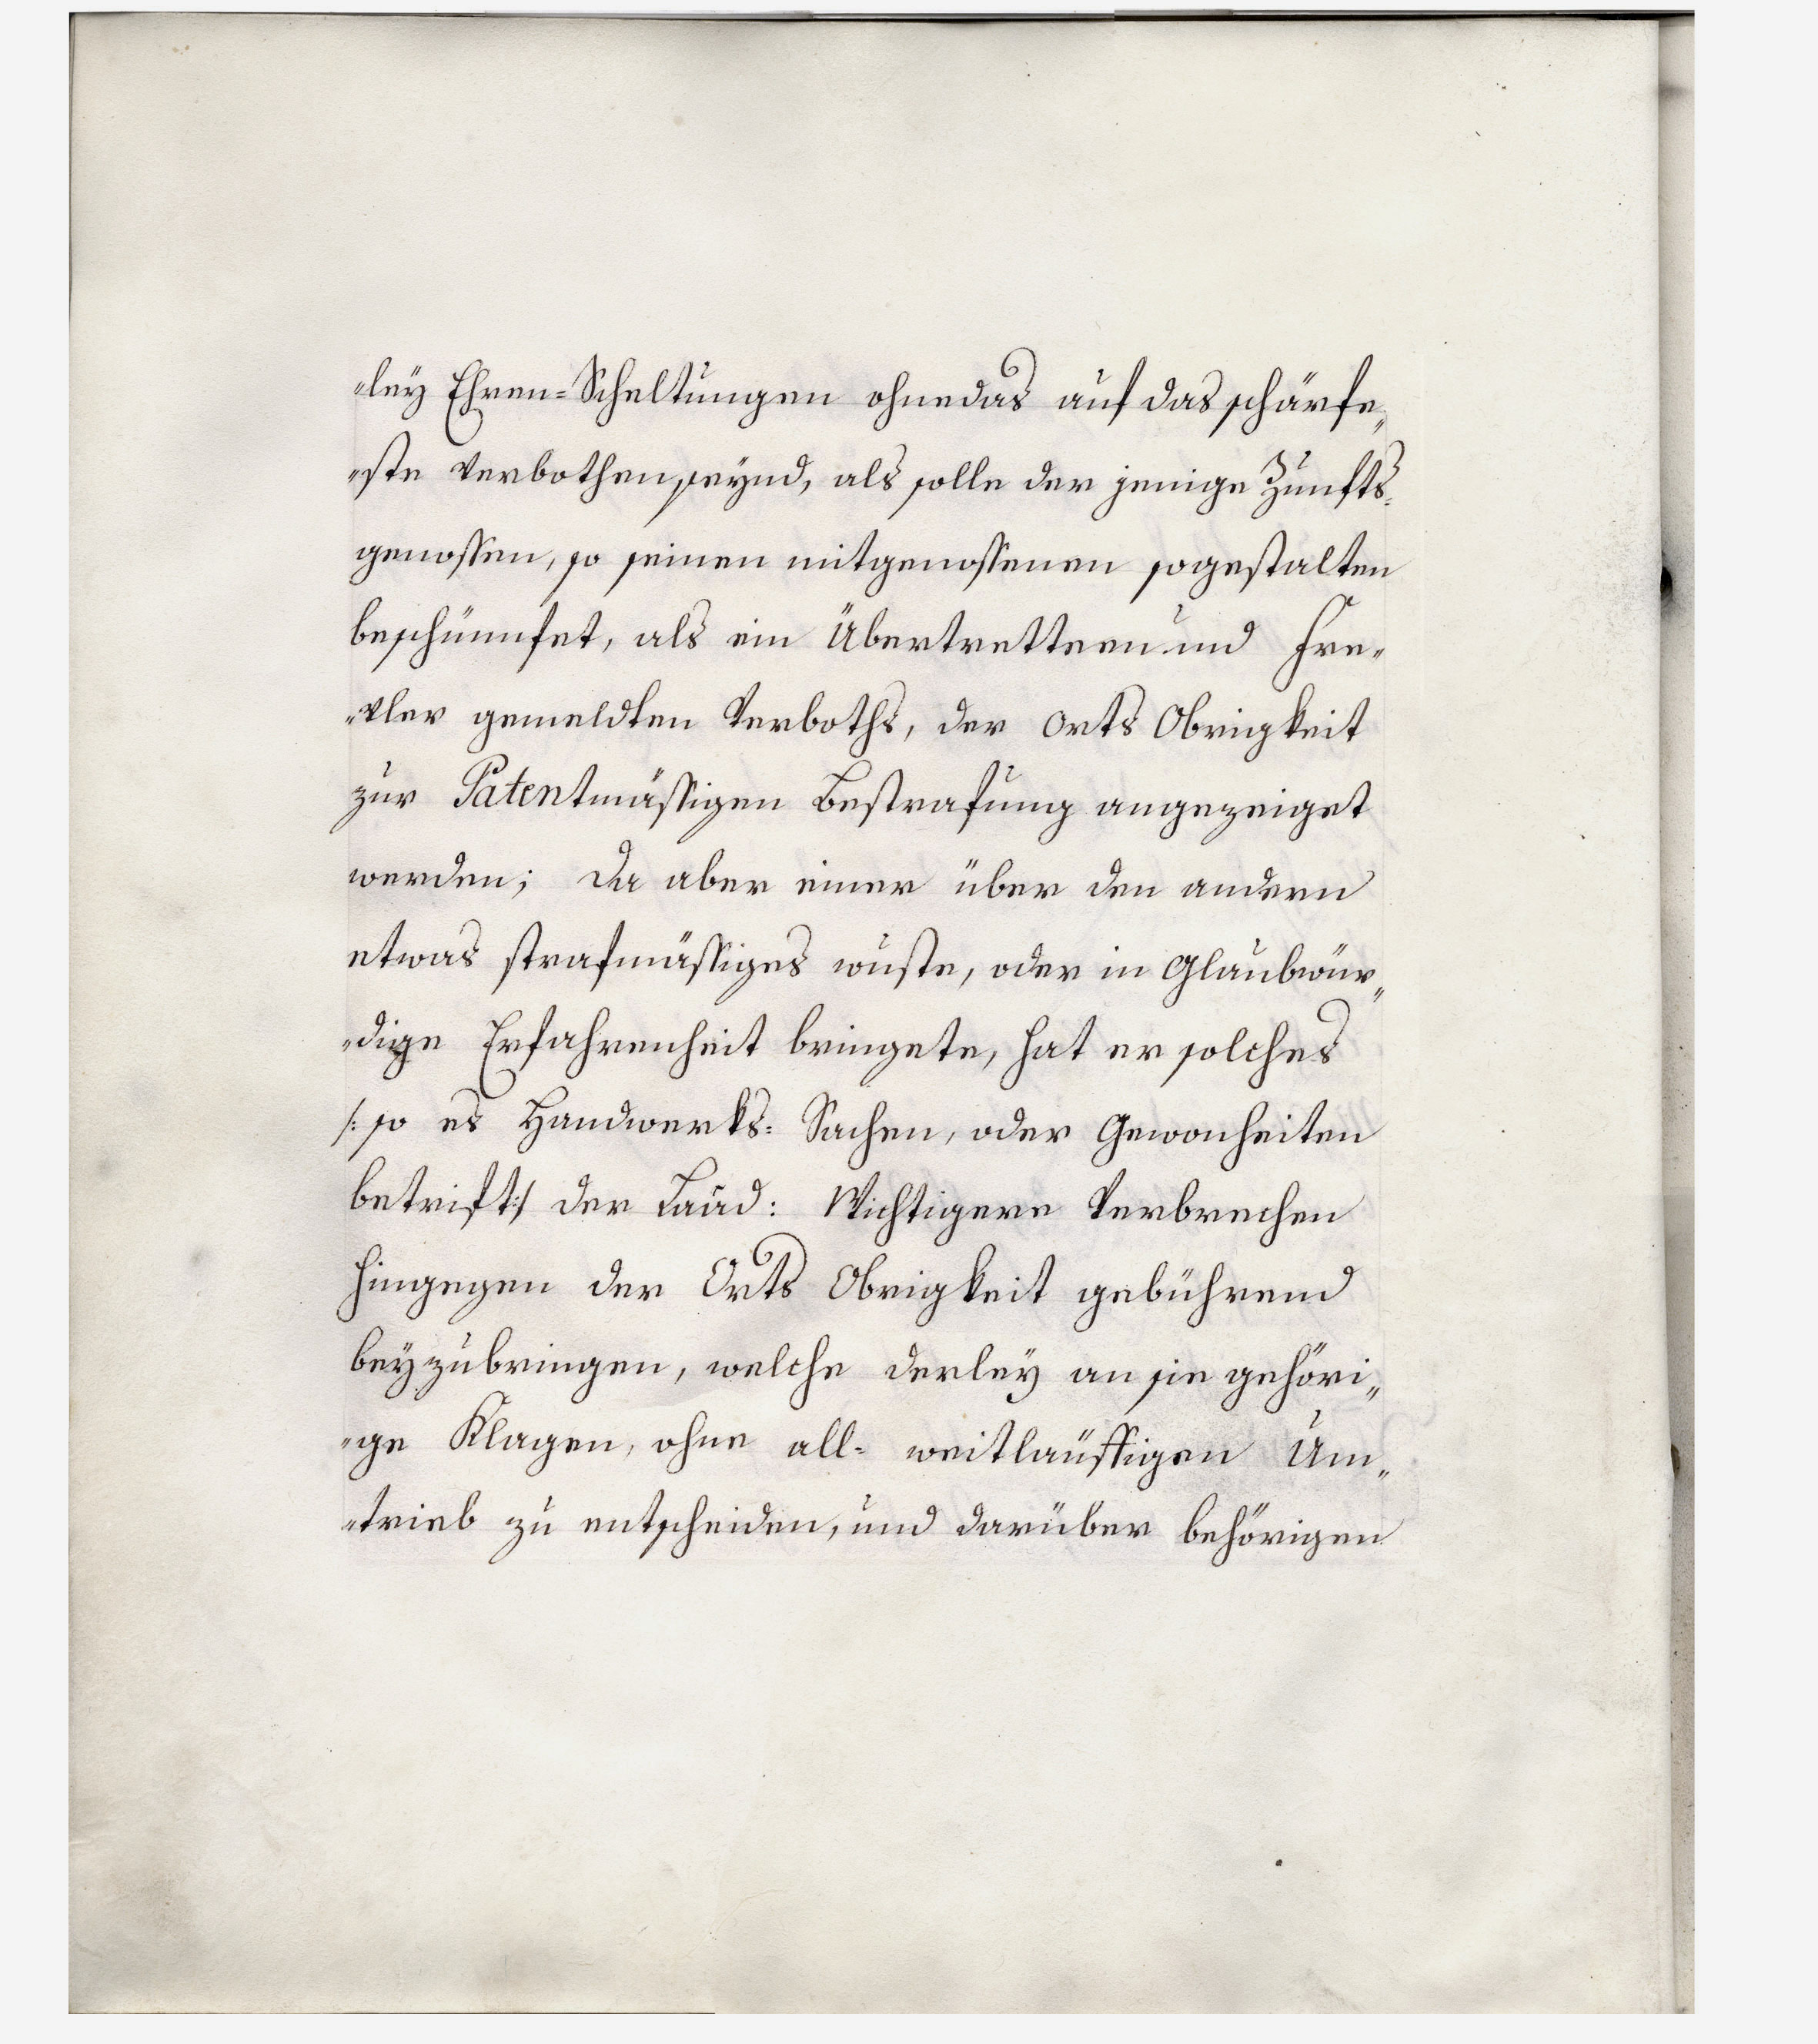 "ley Ehren=Scheltungen ohnedas auf das schärfe„
"ste verbothen seynd, als solle der jenige Zunfts=
genossen, so seinen mitgenossenen sogestalten
beschümfet, als ein Übertrettern und Fre„
"vler gemeldten Verboths, der Orts Obrigkeit
zur Patentmässigen Bestrafung angezeiget
werden; Da aber einer über den andern
etwas strafmässiges wuste, oder in Glaubwür„
"dige Erfahrenheit bringete, hat er solches
/: so es Handwerks= Sachen, oder Gewonheiten
betrift:/ der Laad: Wichtigere Verbrechen
hingegen der Orts Obrigkeit gebührend
beyzubringen, welche derley an sie gehöri„
"ge Klagen, ohne all= weitläuffigen Um„
"trieb zu entscheiden, und darüber behörigen